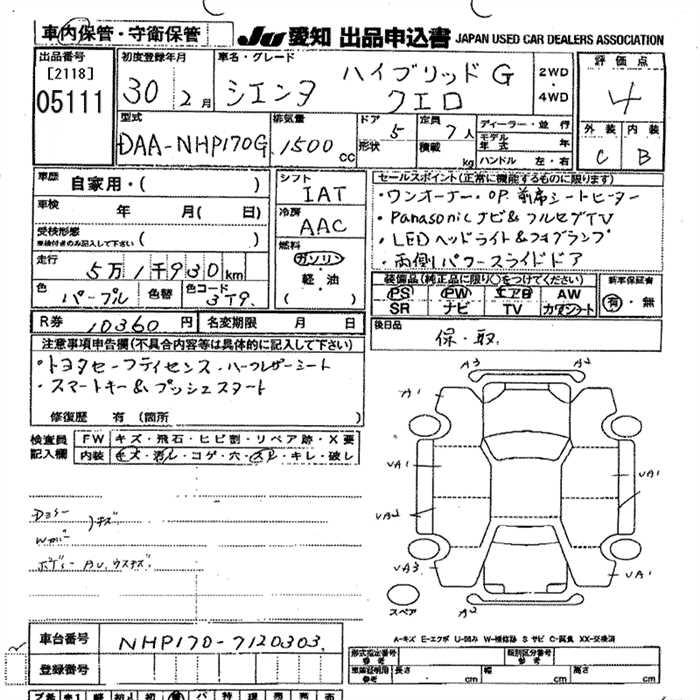 車内保管・守衛保管
JU 愛知 出品申込書 JAPAN USED CAR DEALERS ASSOCIATION
出品番号
[2118]
05111
初度登録年月
30年 2月
車名・グレード
シエンタ ハイブリッド G クエロ
2WD・4WD
評価点
4
外装 内装
C B
型式
DAA-NHP170G
排気量
1500 cc
ドア 5
形状
定員 7人
積載 kg
ディーラー・並行
モデル年式 年
ハンドル 左・右
車歴 自家用・( )
車検 年 月( 日)
受検形態
車検付きのみ記入して下さい ( )
走行 5万1千930km
色 パープル 色替 色コード 3T9.
シフト
IAT
冷房
AAC
燃料
ガソリン
軽・油
( )
セールスポイント(正常に機能するものに限ります)
・ワンオーナー・OP.前席シートヒーター
・Panasonicナビ&フルセグTV
・LEDヘッドライト&フォグランプ
・両側パワースライドドア
装備品(純正品に限り○をつけてください)
PS PW エアB AW
SR ナビ TV カワシート
新車保証書
有・無
R券 10360円 名変期限 月 日
後日品
保・取.
注意事項申告欄(不具合内容等は具体的に記入して下さい)
・トヨタセーフティセンス・ハーフレザーシート
・スマートキー&プッシュスタート
修復歴 有(箇所 )
検査員記入欄
FW キズ・飛石・ヒビ割・リペア跡・X要
内装 キズ・汚レ・コゲ・穴・スレ・キレ・破レ
キズ
ボディー AU.ウスキズ.
A3 A2
A1
UA1 UA1
UA2
UA3 UA1
スペア A2
A-キズ E-エクボ U-凹み W-補修跡 S サビ C-腐食 XX-交換済
車台番号 NHP170-7120303.
登録番号
形式指定番号 参考
類別区分番号 参考
車庫証明用 参考 長さ cm 幅 cm 高さ cm